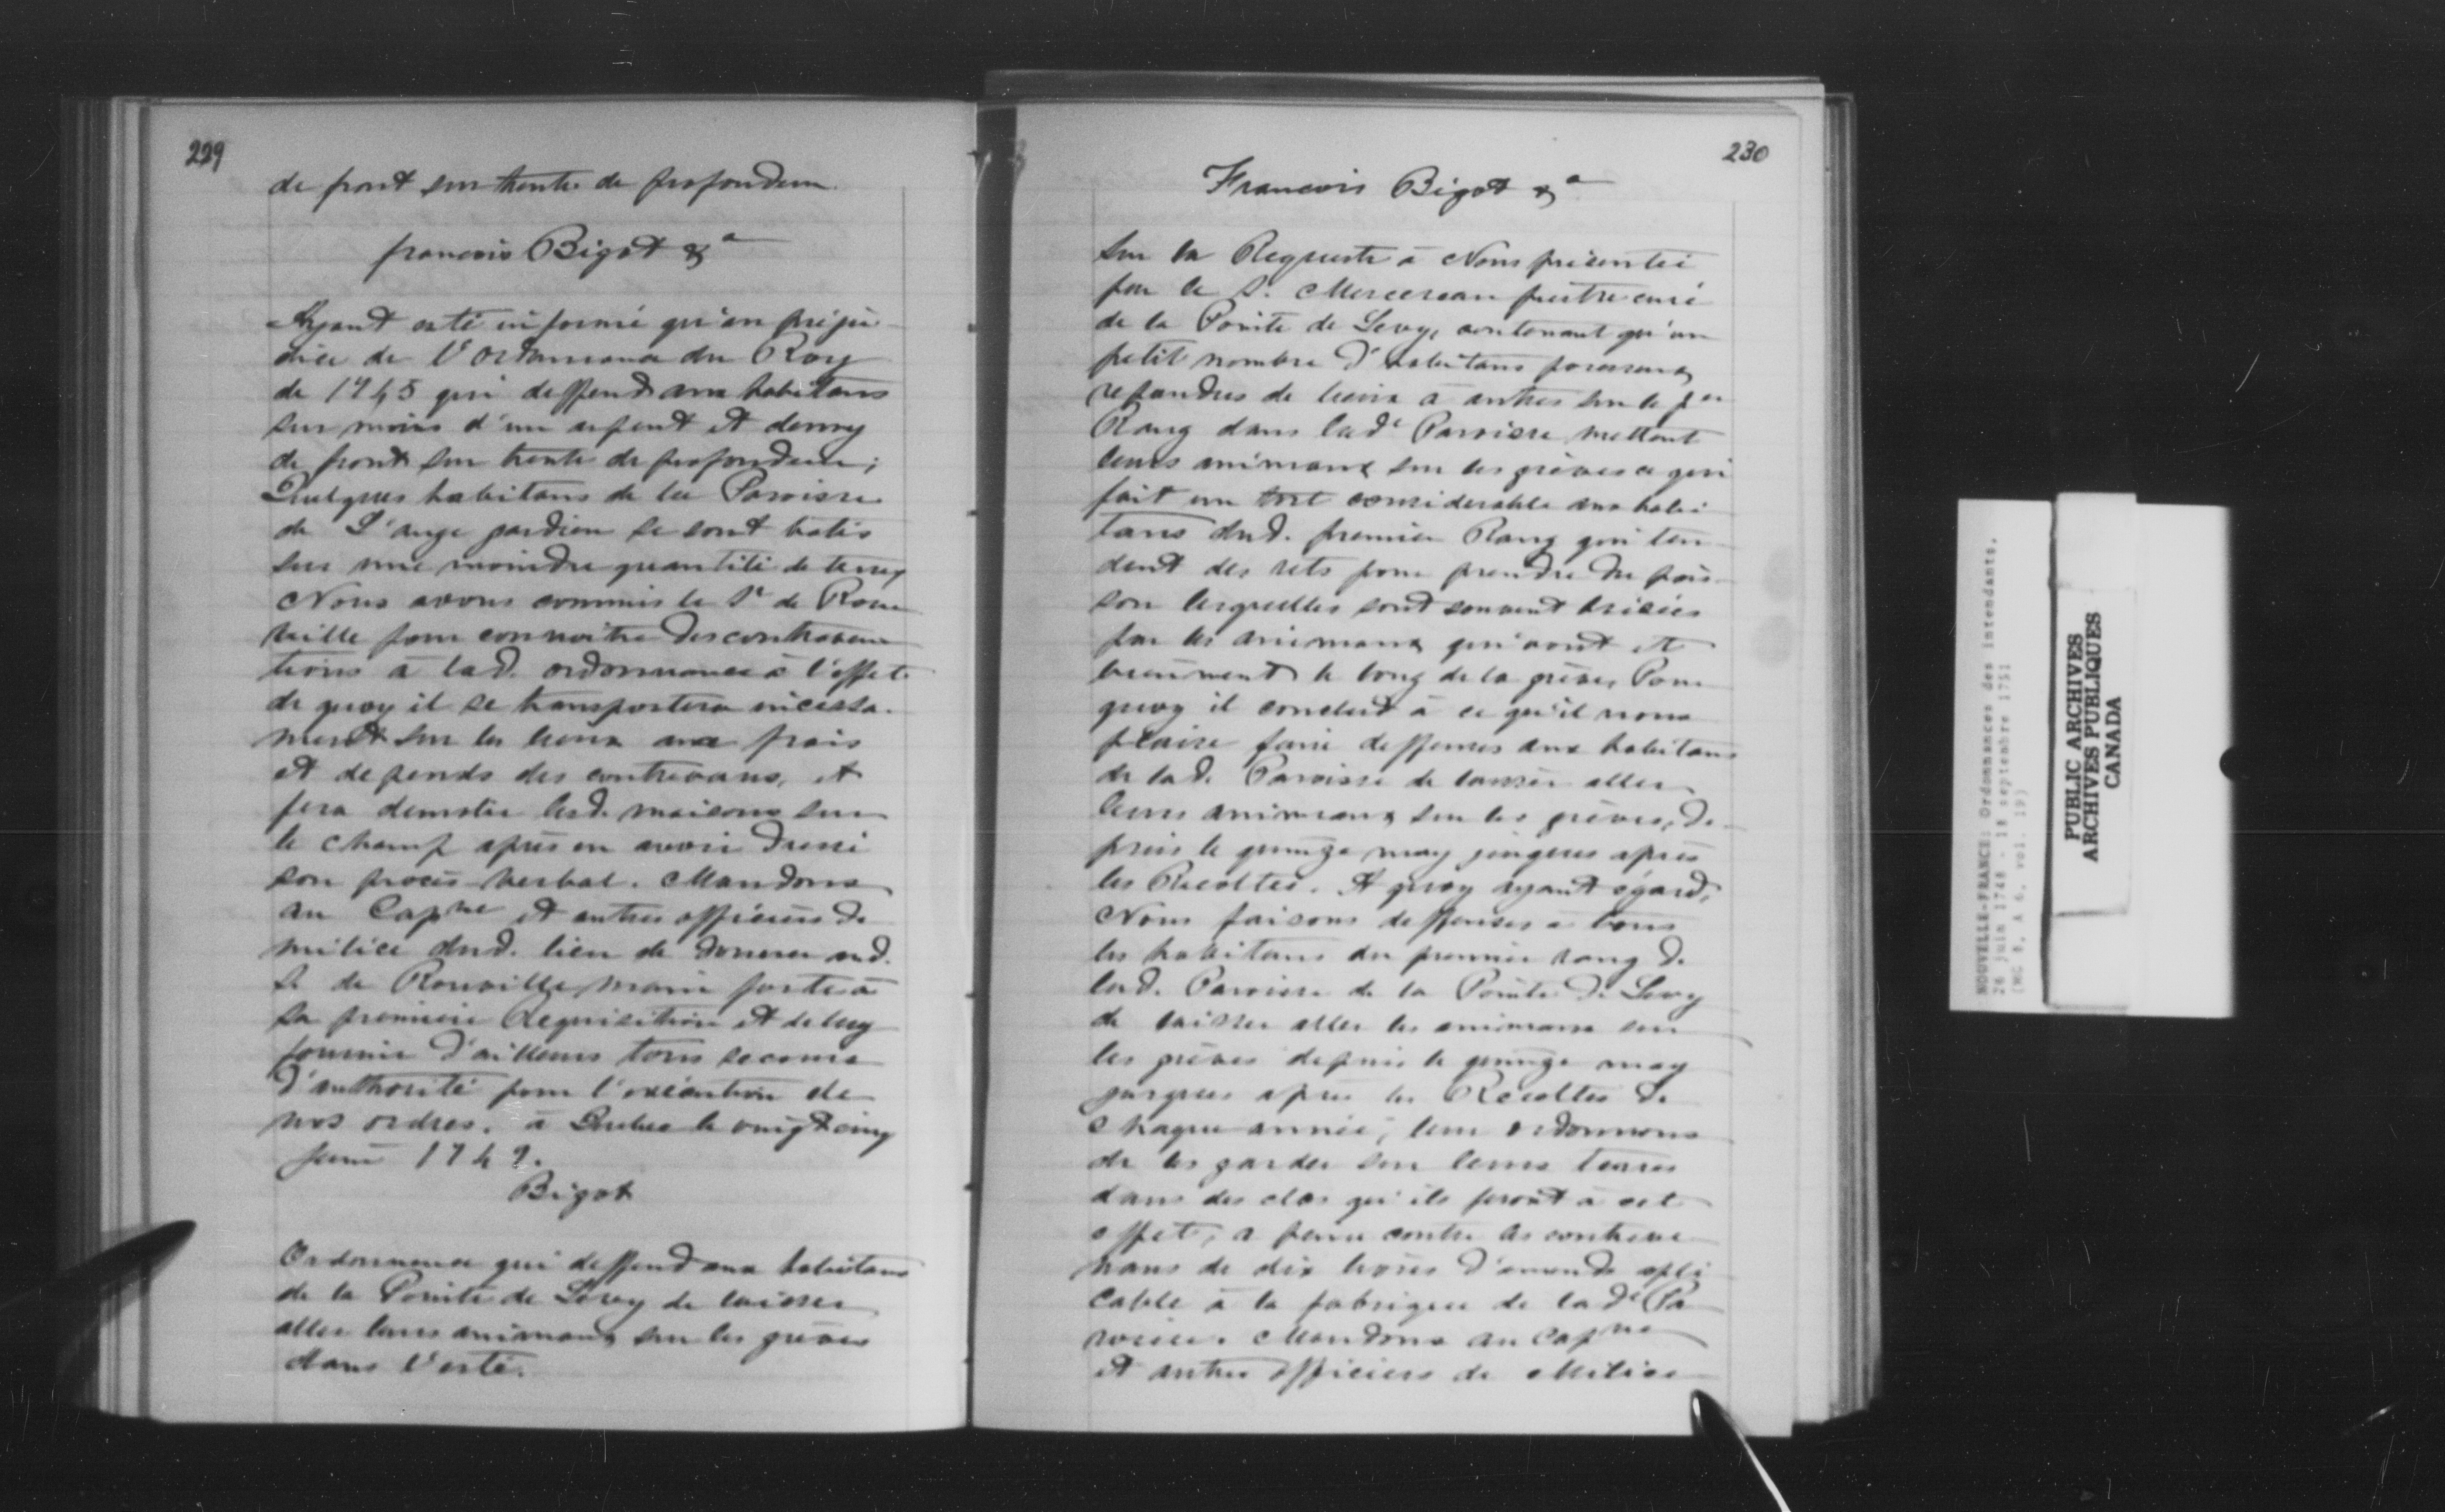 229
de front sur trente de profondeur.
francois Bigot &a
Ayant esté informé qu'en préju-
dice de l'ordonnance du Roy
de 1745 qui deffend aux habitans
sur moins d'un arpent et demy
de front sur trente de profondeur;
Quelques habitans de la Paroisse
de L'ange gardien se sont batis
sur une moindre quantité de terrey
Nous avons commis le Sr de Rou
ville pour connoitre des contraven
tions a lad. ordonnance à l'effet
de quoy il se transportera incessa-
ment sur les lieux aux frais
et depends des contrevans, et
fera demolir lesd. maisons sur
le champ après en avoir dressé
son procès verbal. Mandons
au Capne et autres officiers de
milice dud. lieu de donner aud.
Sr de Rouville main forte à
sa premiere Requisition et de luy
fournir d'ailleurs tous secours
d'authorité pour l'exécution de
nos ordres. à Quebec le vingt cinq
Juin 1749.
Bigot
Ordonnance qui deffend aux habitans
de la Pointe de Levy de laisser
aller leurs animaux sur les grèves
dans l'esté.
230
Francois Bigot &a
Sur la Requeste à Nous présentée
par le S. Mercereau prêtre curé
de la Pointe de Levy, contenant qu'un
petit nombre d'habitans
repandus de lieux à autres sur le per
Rang dans lade Paroisse mettent
leurs animaux sur les grèves ce qui
fait un tort considerable aux habi-
tans dud. premier Rang qui ten-
dent des rets pour prendre du pois-
son lesquelles sont souvent brisées
par les animaux qui vont et
viennent le long de la grève, Pour
quoy il conclud à ce qu'il nous
plaise faire deffenses aux habitans
de lad. Paroisse de laisser aller
leurs animaux sur les grèves, de-
puis le quinze may jusques après
les Récoltes. A quoy ayant égard,
Nous faisons deffenses à tous
les habitans du premier rang de
lad. Paroisse de la Pointe de Levy
de laisser aller les animaux sur
les grèves depuis le quinze may
jusques après les Récoltes de
chaque année, leur ordonnons
de les garder sur leurs terres
dans des clos qu'ils feront à cet
effet, a peine contre les contreve
nans de dix livres d'amende apli
cable à la fabrique de lade Pa
roisse. Mandons au Capne
et autres officiers de Milice
NOUVELLE-FRANCE: Ordonnances des intendants,
26 juin 1748 - 18 septembre 1751
(MG 8, A 6, vol. 19)
PUBLIC ARCHIVES
ARCHIVES PUBLIQUES
CANADA